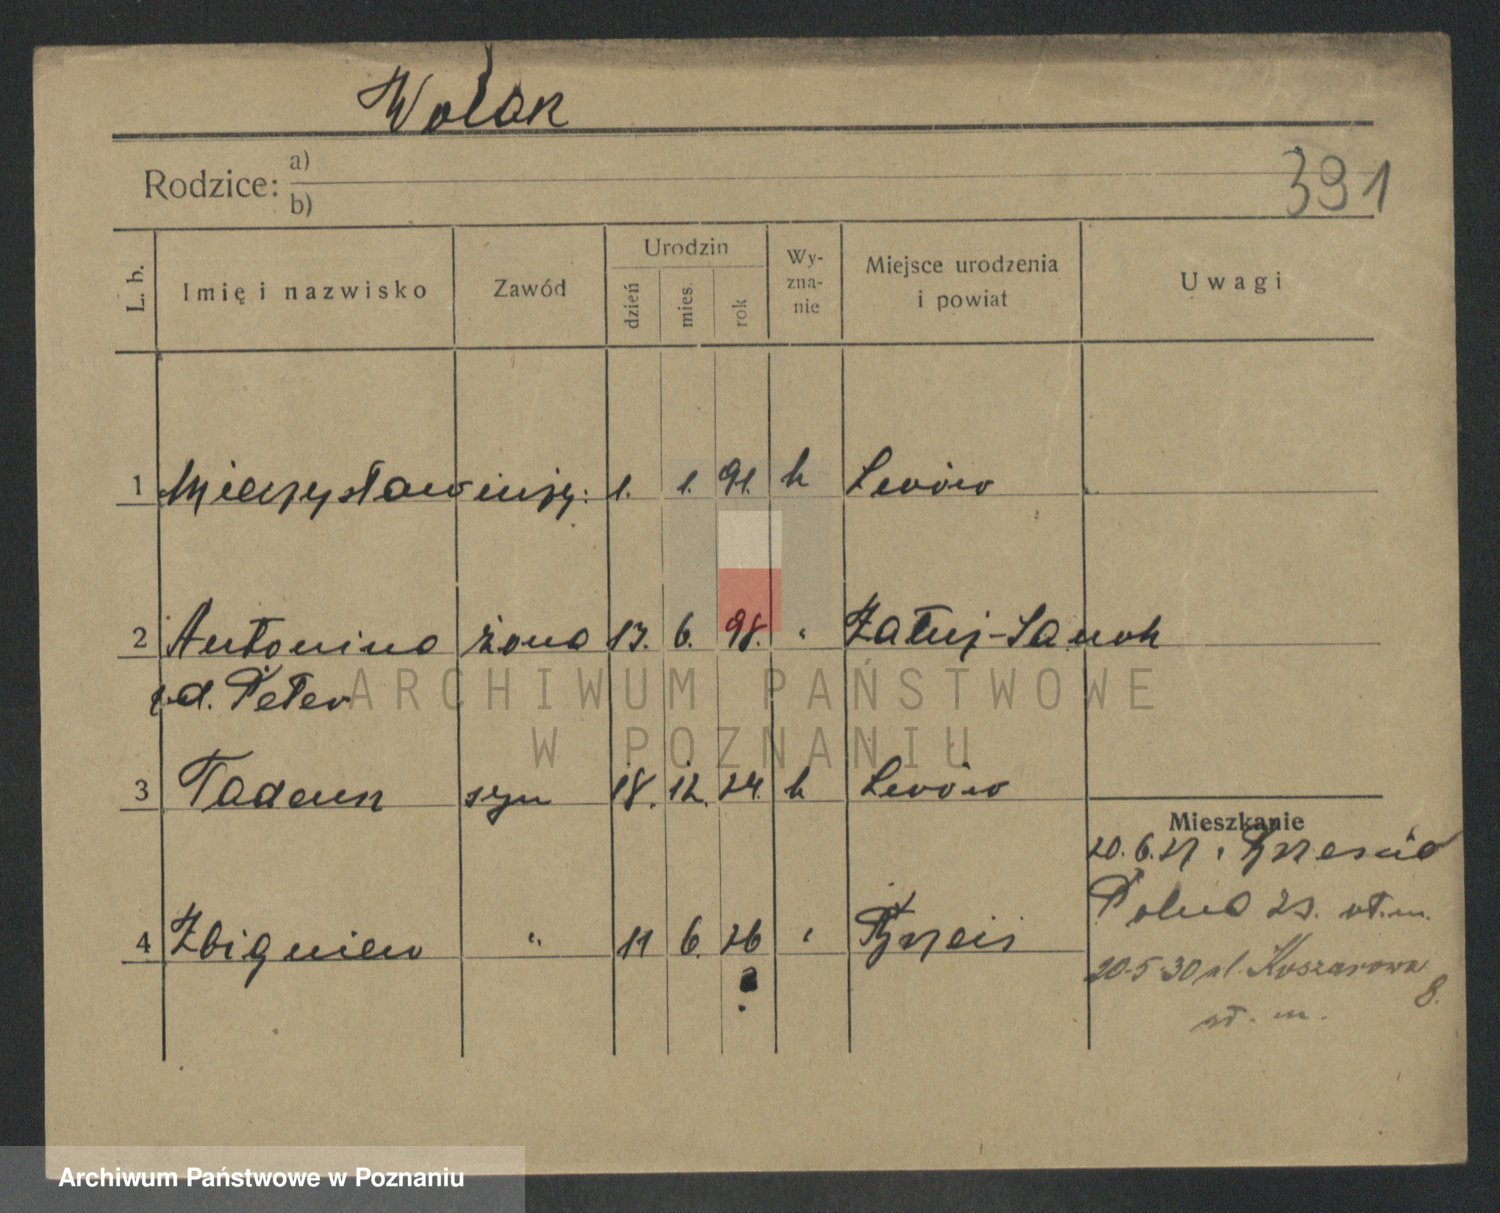 Wolan
Rodzice: a)
b)
391
L. b.
Imię i nazwisko
Zawód
Urodzin
dzień
mies.
rok
Wy-
zna-
nie
Miejsce urodzenia
i powiat
Uwagi
1 Mieczysław inży: 1. 1. 91. k Lwów
2 Antonina żona 13. 6. 98. " Załuż-Sanok
z d. Peter
ARCHIWUM PAŃSTWOWE
W POZNANIU
3 Tadeusz syn 18. 12. 24. k Lwów
Mieszkanie
20. 6. 27.
Polna 23. wł. m.
4 Zbigniew " 11 6. 26 "
20-5-30 ul. Koszarowa
8.
wł. m.
Archiwum Państwowe w Poznaniu